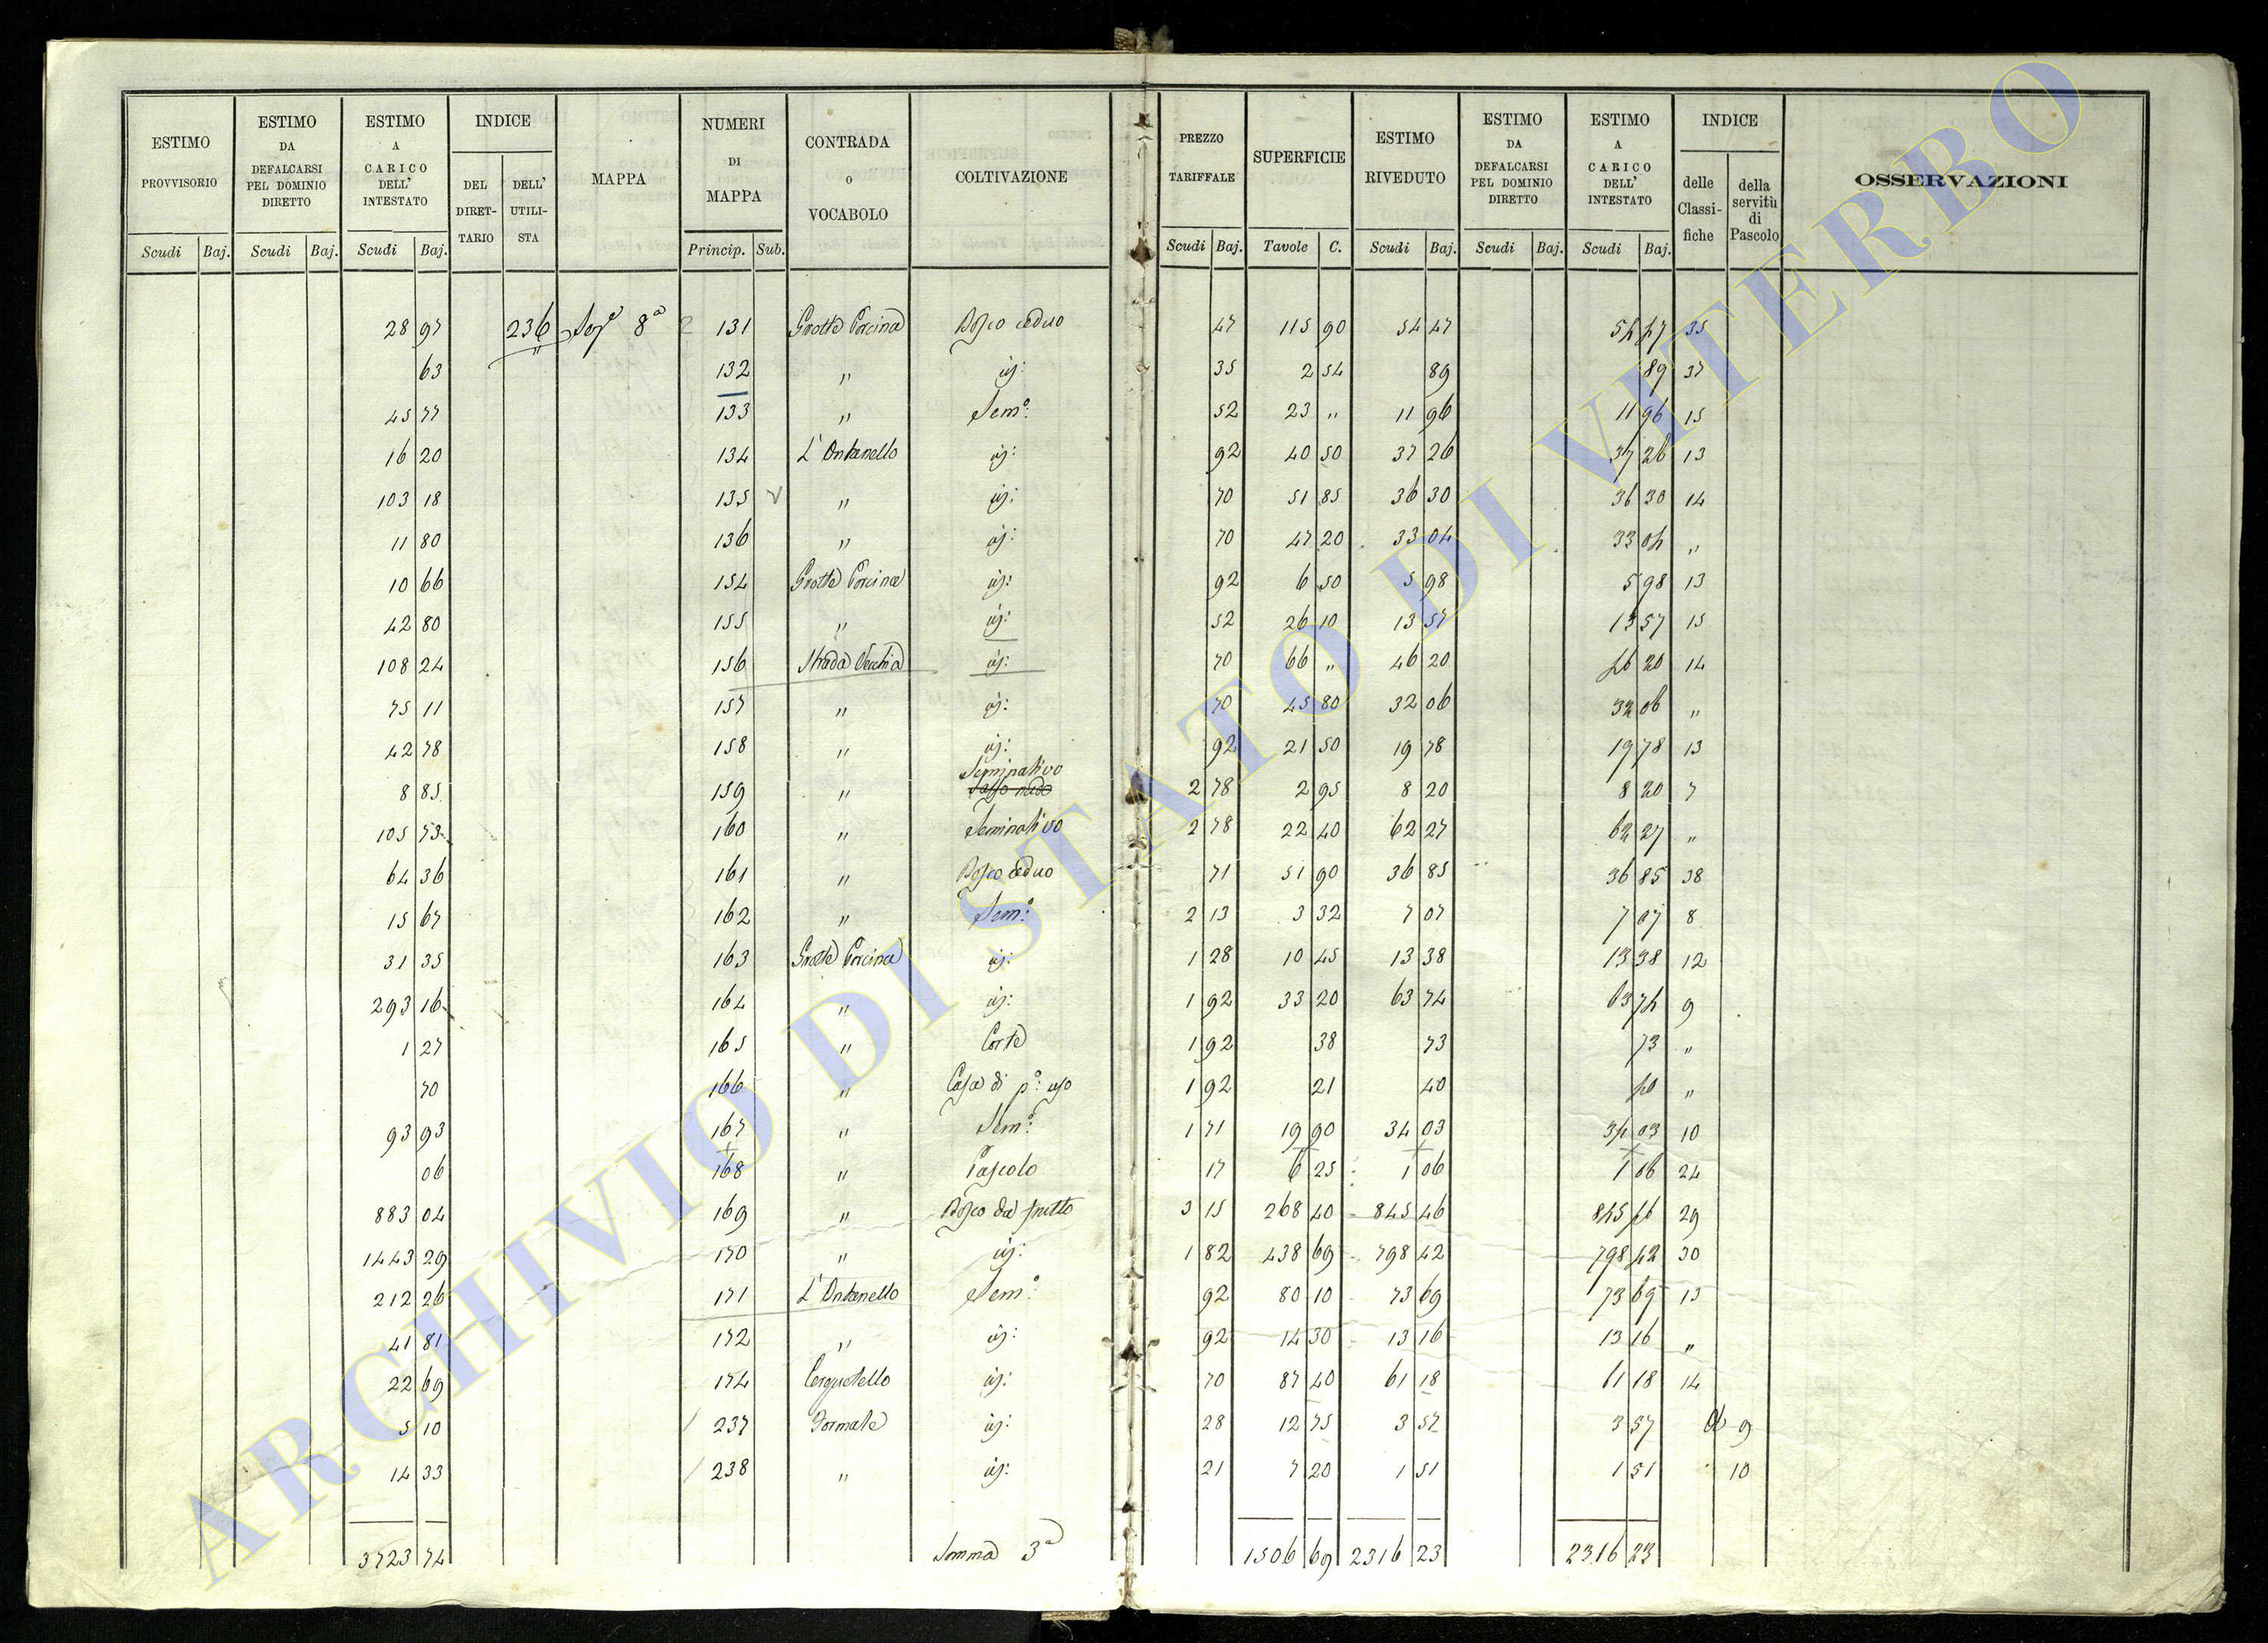 ESTIMO PROVVISORIO
ESTIMO DA DEFALCARSI PEL DOMINIO DIRETTO
ESTIMO A CARICO DELL' INTESTATO
INDICE
DEL DIRET- TARIO
DELL' UTILI- STA
MAPPA
NUMERI DI MAPPA
CONTRADA O VOCABOLO
COLTIVAZIONE
PREZZO TARIFFALE
SUPERFICIE
ESTIMO RIVEDUTO
ESTIMO DA DEFALCARSI PEL DOMINIO DIRETTO
ESTIMO A CARICO DELL' INTESTATO
INDICE
delle Classi- fiche
della servitù di Pascolo
OSSERVAZIONI
Scudi Baj. Scudi Baj. Scudi Baj. Princip. Sub. Scudi Baj. Tavole C. Scudi Baj. Scudi Baj. Scudi Baj.
28 97 236 Sez.e 8a 131 Grotta Porcina Bosco ceduo 47 115 90 54 47 54 47 35
63 132 " id: 35 2 54 89 89 37
45 77 133 " Sem.o: 52 23 " 11 96 11 96 15
16 20 134 L'Ontanello id: 92 40 50 37 26 37 26 13
103 18 135 " id: 70 51 85 36 30 36 30 14
11 80 136 " id: 70 47 20 33 04 33 04 "
10 66 154 Grotta Porcina id: 92 6 50 5 98 5 98 13
42 80 155 " id: 52 26 10 13 57 13 57 15
108 24 156 Strada Vecchia id: 70 66 " 46 20 46 20 14
75 11 157 " id: 70 45 80 32 06 32 06 "
42 78 158 " id: 92 21 50 19 78 19 78 13
Seminativo
8 85 159 " Sasso nudo 2 78 2 95 8 20 8 20 7
105 73 160 " Seminativo 2 78 22 40 62 27 62 27 "
64 36 161 " Bosco ceduo 71 51 90 36 85 36 85 38
15 67 162 " Sem.o: 2 13 3 32 7 07 7 07 8
31 35 163 Grotta Porcina id: 1 28 10 45 13 38 13 38 12
293 16 164 " id: 1 92 33 20 63 74 63 74 9
1 27 165 " Corte 1 92 38 73 73 "
70 166 " Casa di p.o: uso 1 92 21 40 40 "
93 93 167 " Sem.o: 1 71 19 90 34 03 34 03 10
06 168 " Pascolo 17 6 25 1 06 1 06 24
883 04 169 " Bosco da frutto 3 15 268 40 845 46 845 46 29
1443 29 170 " id: 1 82 438 69 798 42 798 42 30
212 26 171 L'Ontanello Sem.o: 92 80 10 73 69 73 69 13
41 81 172 " id: 92 14 30 13 16 13 16 "
22 69 174 Cerquetello id: 70 87 40 61 18 61 18 14
5 10 237 Formale id: 28 12 75 3 57 3 57 9
14 33 238 " id: 21 7 20 1 51 1 51 10
3723 74 Somma 3a 1506 69 2316 23 2316 23
ARCHIVIO DI STATO DI VITERBO